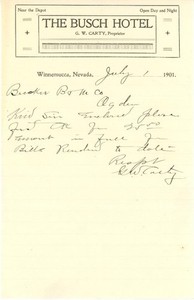 Near the Depot Open Day and Night
THE BUSCH HOTEL
G. W. CARTY, Proprietor
Winnemucca, Nevada, July 1 1901.
Becker B & M Co
Ogden
Dear Sir Enclosed please
find
amount in full for
Bills Rendered to date
Respt
G W Carty